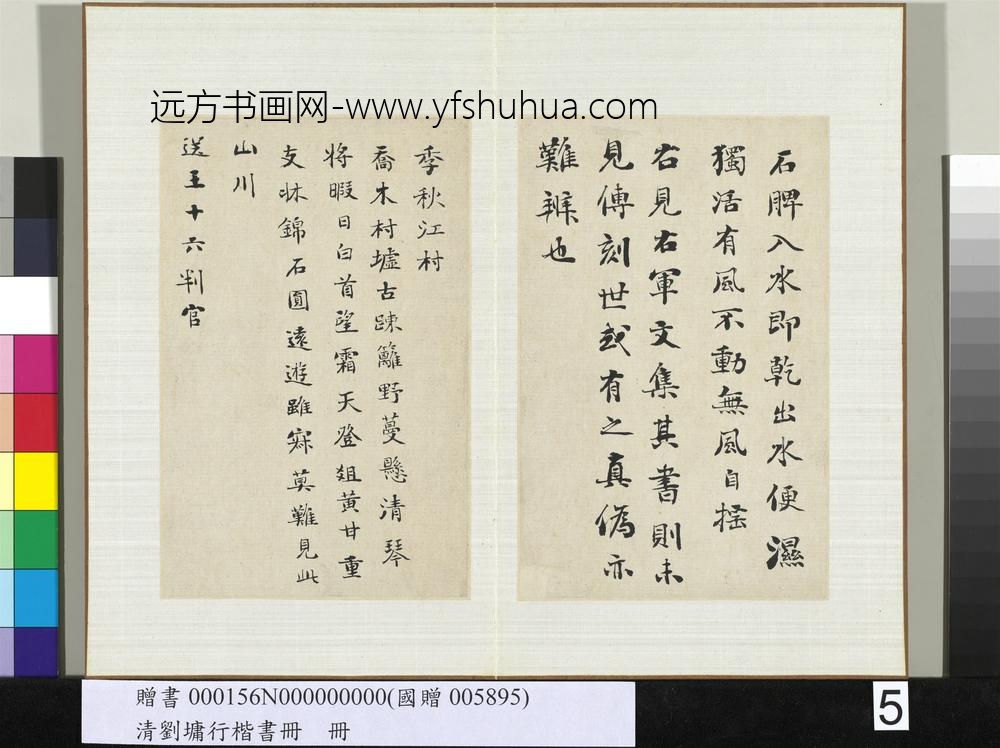 远方书画网-www.yfshuhua.com
石脾入水即乾出水便濕
獨活有風不動無風自搖
右見右軍文集其書則未
見傳刻世或有之真偽亦
難辨也
季秋江村
喬木村墟古踈籬野蔓懸清琴
將暇日白首望霜天登俎黄甘重
支牀錦石圓遠遊雖寂莫難見此
山川
送王十六判官
贈書 000156N000000000(國贈 005895)
清劉墉行楷書冊 冊
5